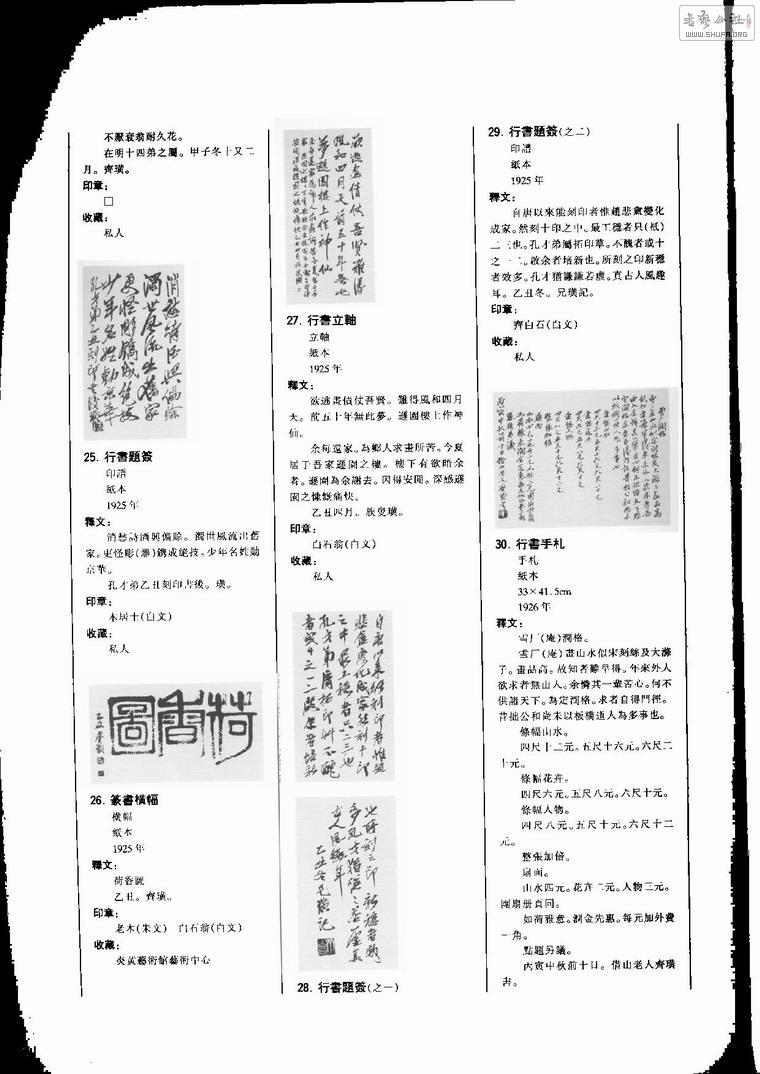 書藝公社
WWW.SHUFA.ORG
不厭衰翁耐久花。
在明十四弟之屬。甲子冬十又二
月。齊璜。
印章：
□
收藏：
私人
25. 行書題簽
印譜
紙本
1925年
釋文：
消愁詩酒興偏賒。濁世風流出舊
家。更怪彫(雕)鐫成絕技。少年名姓動
京華。
孔才弟乙丑刻印書後。璜。
印章：
木居士(白文)
收藏：
私人
荷香圖
26. 篆書橫幅
橫幅
紙本
1925年
釋文：
荷香圖
乙丑。齊璜。
印章：
老木(朱文) 白石翁(白文)
收藏：
炎黄藝術館藝術中心
27. 行書立軸
立軸
紙本
1925年
釋文：
欲逃畫債仗吾賢。難得風和四月
天。前五十年無此夢。遯園樓上作神
仙。
余每還家。為鄉人求畫所苦。今夏
居于吾家遯園之樓。樓下有欲晤余
者。遯園為余謝去。因得安閒。深感遯
園之慷慨痛快。
乙丑四月。族叟璜。
印章：
白石翁(白文)
收藏：
私人
28. 行書題簽(之一)
29. 行書題簽(之二)
印譜
紙本
1925年
釋文：
自唐以來能刻印者惟趙悲盦變化
成家。然刻十印之中。最工穩者只(柢)
二三也。孔才弟屬拓印草。不醜者或十
之一二。啟余者培新也。所刻之印新穩
者效多。孔才猶謙謙若虛。真古人風趣
耳。乙丑冬。兄璜記。
印章：
齊白石(白文)
收藏：
私人
30. 行書手札
手札
紙本
33×41.5cm
1926年
釋文：
雪厂(庵)潤格。
雪厂(庵)畫山水似宋刻絲及大滌
子。畫品高。故知者難早得。年來外人
欲求者無山人。余憐其一輩苦心。何不
供諸天下。為定潤格。求者自得門徑。
昔拙公和尚未以板橋道人為多事也。
條幅山水。
四尺十二元。五尺十六元。六尺二
十元。
條幅花卉。
四尺六元。五尺八元。六尺十元。
條幅人物。
四尺八元。五尺十元。六尺十二
元。
整張加倍。
扇面。
山水四元。花卉二元。人物三元。
團扇册頁同。
如荷雅意。潤金先惠。每元加外費
一角。
點題另議。
丙寅中秋前十日。借山老人齊璜
書。